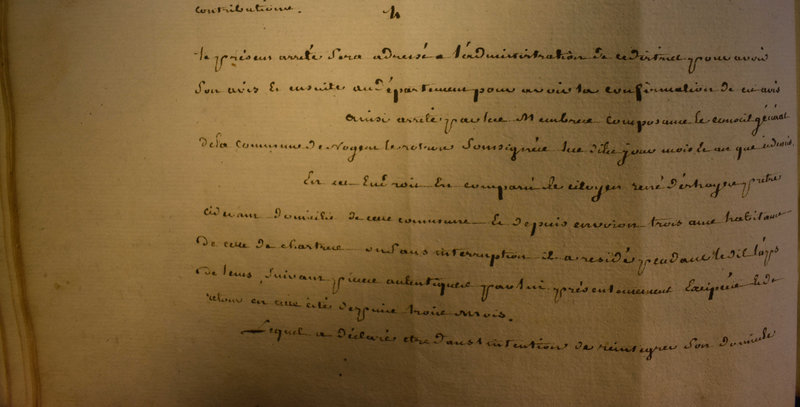 contributions.
4
le présent arrêté sera adressé a l'administration de ce district pour avoir
son avis Et ensuite au département pour avoir la confirmation de cet avis
ainsi arrêté par les Membres composans le conseil général
de la commune de Nogent le rotrou soussignés les dits jour mois Et an que dessus.
En cet Endroit Est comparu le citoyen rené deshayes prêtre
cidevant domicilié de cette commune Et depuis environ trois ans habitant
de celle de chartres où sans interruption il a residé pendant le dit laps
de tems, suivant piece autentique par lui présentement Exhipée Et de
retour en cette cité depuis trois Mois.
Lequel a déclaré etre dans l'intention de réintegrer son domicile